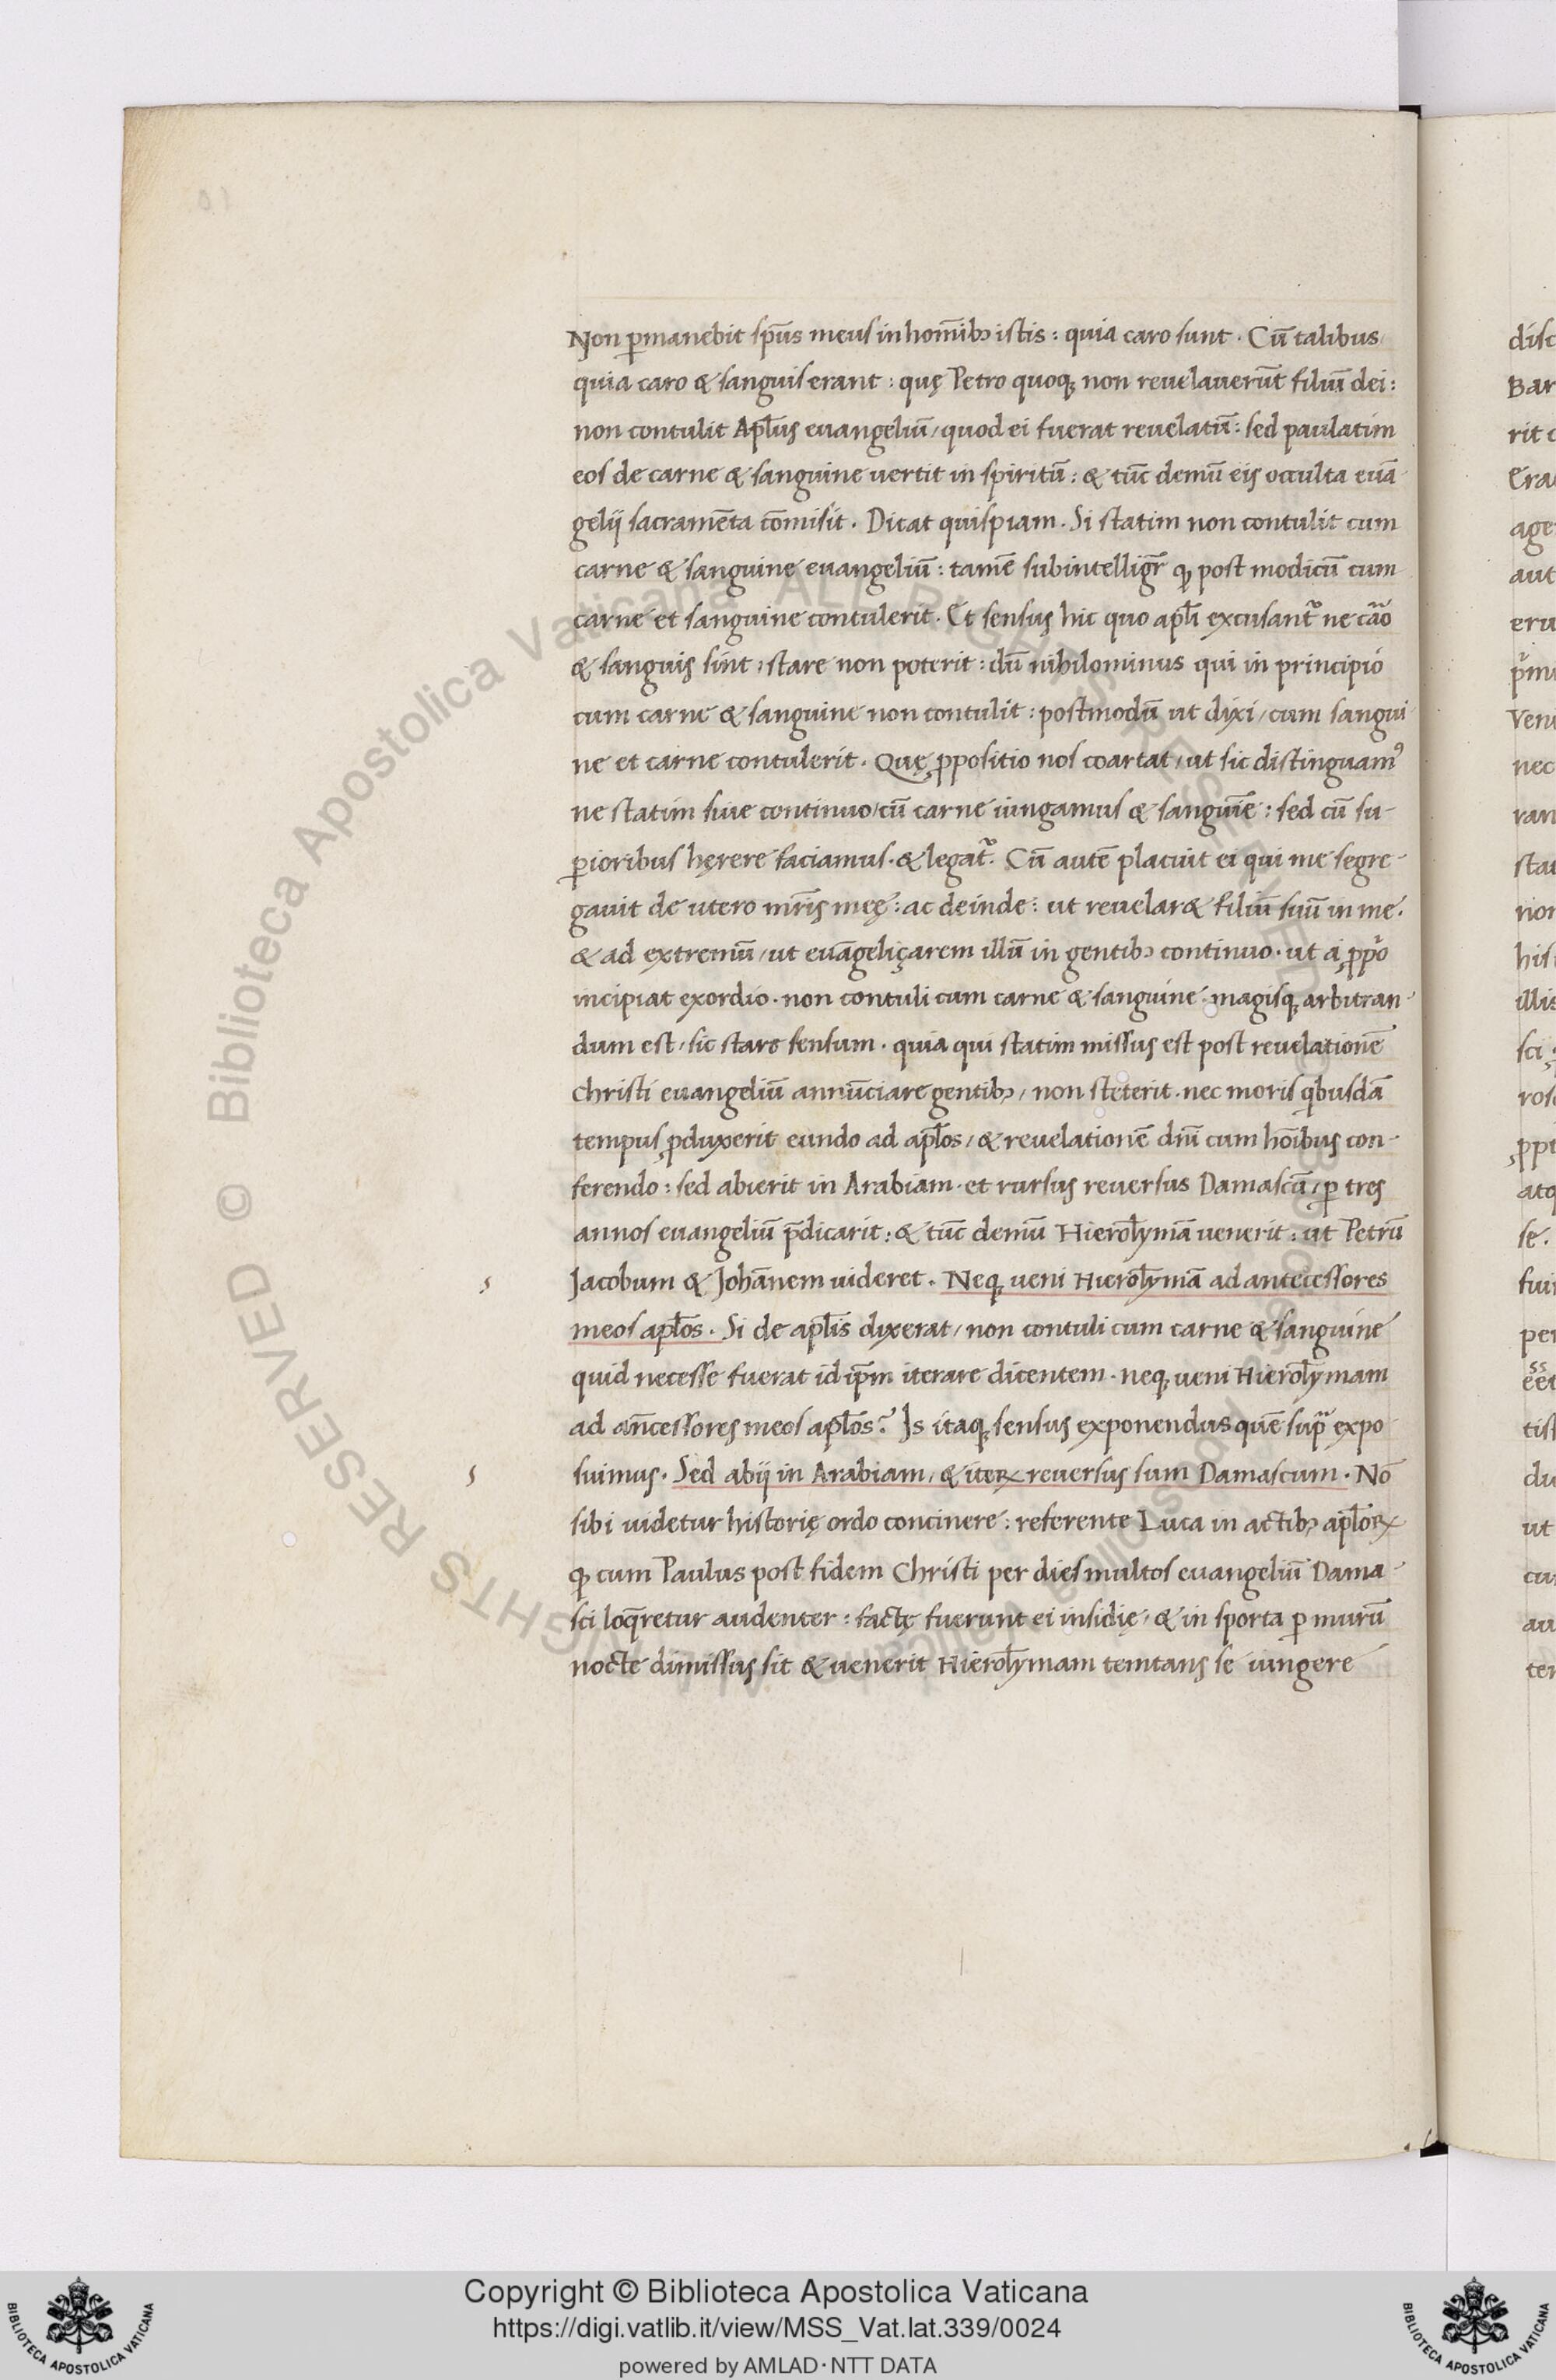 Non ꝑmanebit sp̄us meus in homīibꝫ istis : quia caro sunt . Cū talibus,
quia caro & sanguis erant : quę Petro quoqꝫ non reuelauerūt filiū dei :
non contulit Apl̄us euangeliū, quod ei fuerat reuelatū : sed paulatim
eos de carne & sanguine uertit in spiritū : & tūc demū eis occulta euā
gelij sacramēta cōmisit . Dicat quispiam . Si statim non contulit cum
carne & sanguine euangeliū : tamē subintelligr̄ ꝙ post modicū cum
carne et sanguine contulerit . Et sensus hic quo apl̄i excusantᷣ ne caᷓo
& sanguis sint, stare non poterit : dū nihilominus qui in principio
cum carne & sanguine non contulit : postmodū ut dixi, cum sangui
ne et carne contulerit . Quę ꝓpositio nos coartat, ut sic distinguamꝰ
ne statim siue continuo, cū carne iungamus & sanguīe : sed cū su-
ꝑioribus hęrere faciamus . & legatᷣ . Cū autē placuit ei qui me segre-
gauit de utero mr̄is meę : ac deinde : ut reuelar& filiū suū in me .
& ad extremū, ut euāgeliçarem illū in gentibꝫ continuo . ut a ꝓpͥo
incipiat exordio . non contuli cum carne & sanguine . magisqꝫ arbitran-
dum est, sic stare sensum . quia qui statim missus est post reuelationē
Christi euangeliū annūciare gentibꝫ, non steterit . nec moris qͥbusdā
tempus ꝓduxerit eundo ad apl̄os, & reuelationē dn̄i cum hōibus con-
ferendo : sed abierit in Arabiam . et rursus reuersus Damascū, ꝑ tres
annos euangeliū p̄dicarit : & tūc demū Hierosol̄ymā uenerit : ut Petrū
Jacobum & Johānem uideret . Neqꝫ ueni Hierosol̄ymā ad antecessores
meos apl̄os . Si de apl̄is dixerat, non contuli cum carne & sanguine
quid necesse fuerat id ip̄m iterare dicentem . neqꝫ ueni Hierosol̄ymam
ad an̄cessores meos apl̄os ? Is itaqꝫ sensus exponendus quē supᷓ expo
suimus . Sed abij in Arabiam, & iteꝝ reuersus sum Damascum . Nō
sibi uidetur historię ordo concinere : referente Luca in actibꝫ apl̄oꝝ
ꝙ cum Paulus post fidem Christi per dies multos euangeliū Dama-
sci loq̄retur audenter : factę fuerunt ei insidię, & in sporta ꝑ murū
nocte dimissus sit & uenerit Hierosol̄ymam temtans se iungere
disc
Bar
rit c
Era
age
aut
eru
pͥmu
Veni
nec
ran
stat
non
hist
illis
sci
rosc
ꝓpt
atq
se .
fuit
per
eet
tiss
du
ut
cu
au
ter
© Biblioteca Apostolica Vaticana ALL RIGHTS RESERVED
Copyright © Biblioteca Apostolica Vaticana
https://digi.vatlib.it/view/MSS_Vat.lat.339/0024
powered by AMLAD·NTT DATA
BIBLIOTECA APOSTOLICA VATICANA
BIBLIOTECA APOSTOLICA VATICANA